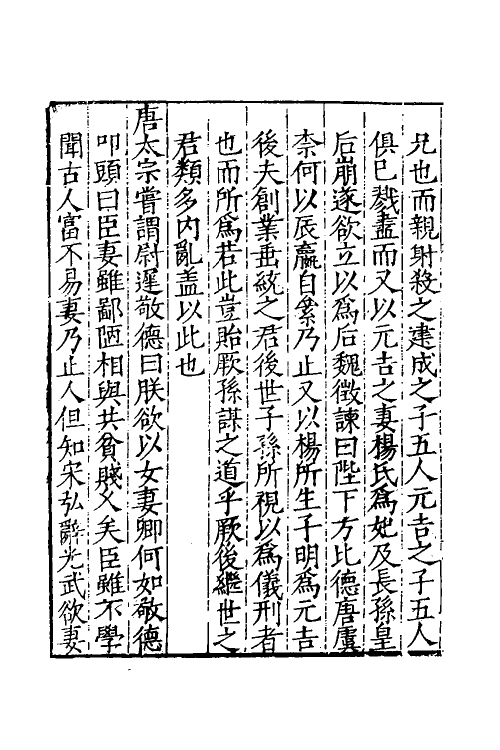 兄也而親射殺之建成之子五人元吉之子五人
俱已戮盡而又以元吉之妻楊氏為妃及長孫皇
后崩遂欲立以為后魏徵諫曰陛下方比德唐虞
柰何以辰嬴自累乃止又以楊所生子明為元吉
後夫創業垂統之君後世子孫所視以為儀刑者
也而所為若此豈貽厥孫謀之道乎厥後繼世之
君類多内亂盖以此也
唐太宗嘗謂尉遲敬德曰朕欲以女妻卿何如敬德
叩頭曰臣妻雖鄙陋相與共貧賤乆矣臣雖不學
聞古人富不易妻乃止人但知宋弘辭光武欲妻